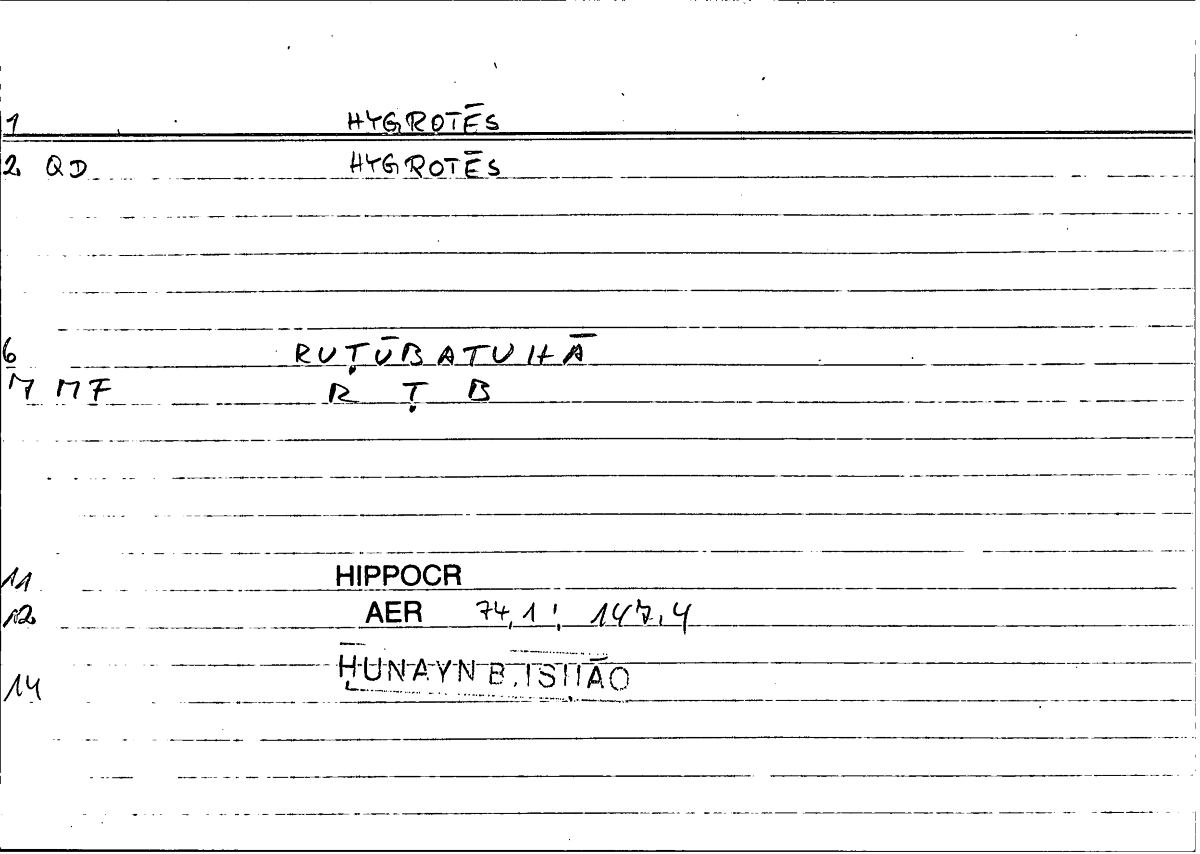 1 HYGROTĒS
2 QD HYGROTĒS
6 RUṬŪBATUHĀ
7 MF R Ṭ B
11 HIPPOCR
12 AER 74,1; 147,4
14 ḤUNAYN B. ISḤĀQ